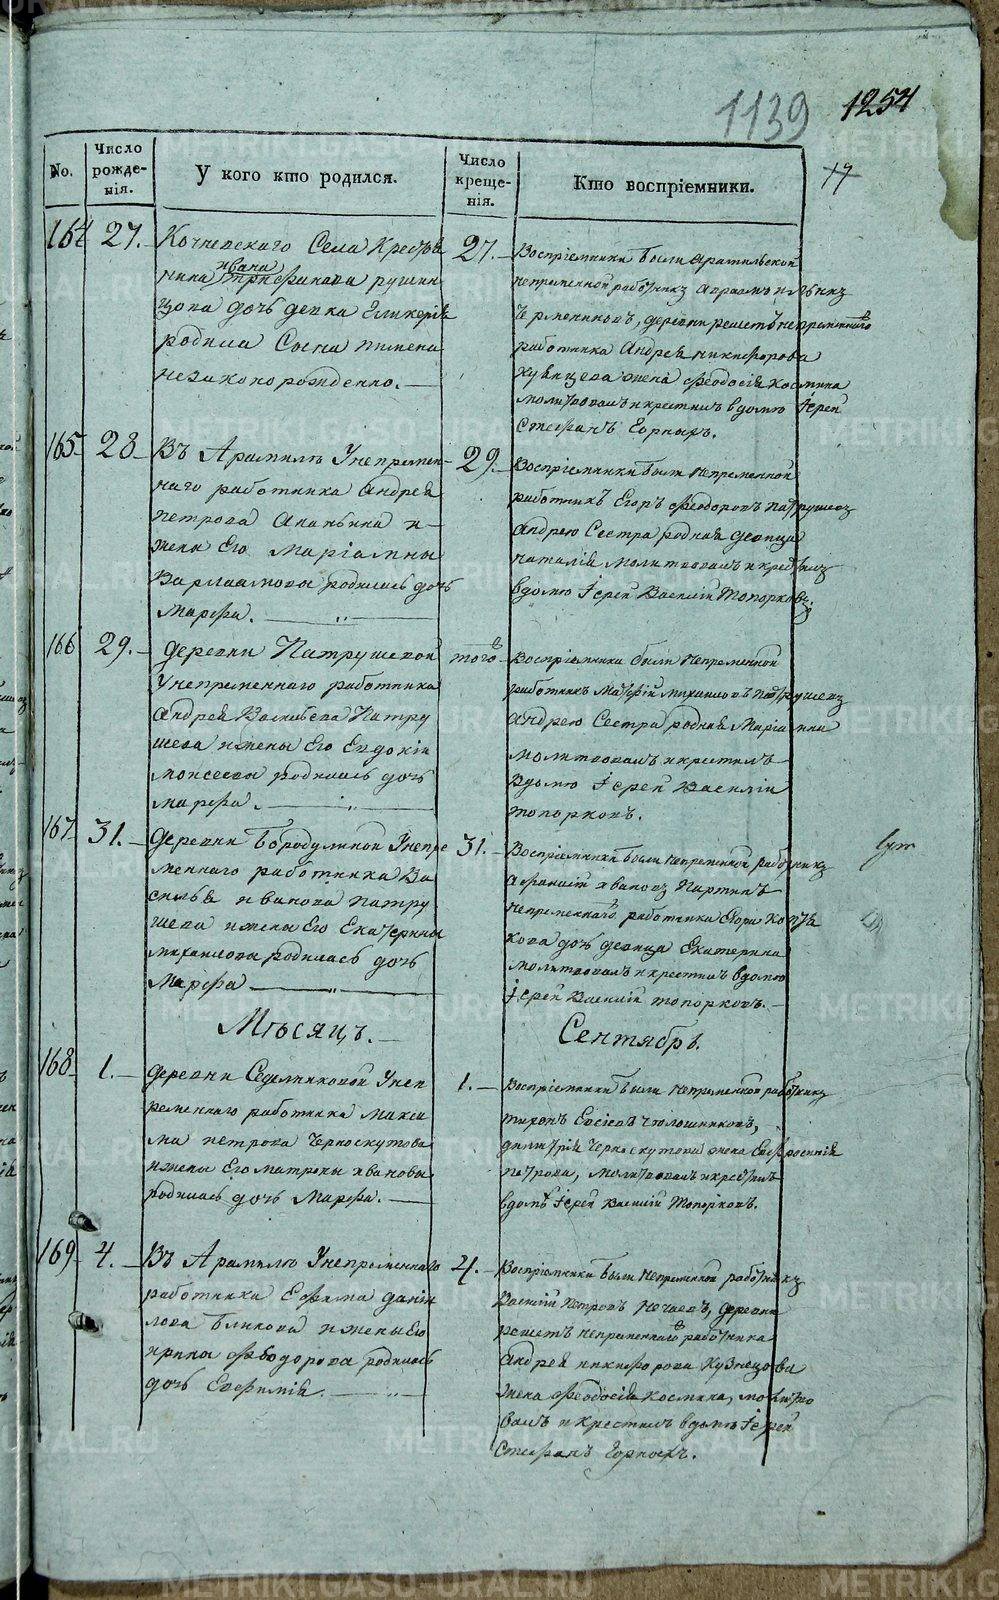 1139 1254
17
No.
Число рожде-
нія.
У кого кто родился.
Число креще-
нія.
Кто воспріемники.
164 27. Кочневскаго Села Крестья
нина Ивана Трифонова рушин
цова дочь девка Гликерія
родила Сына пимена
незаконорожденно.
27. Воспріемники были Арамильской
непременной работникъ Авраамъ ильинъ
Чермениновъ, деревни решетъ непременнаго
работника Андрея никифорова
жена феодосія космина
молитвовалъ и крестилъ в дому Іерей
Стефанъ Горныхъ.
165 28 Въ Арамиле У непремен-
наго работника Андрея
петрова Ананьина и
жены Его Маріамны
Варлаамовы родилась дочь
Марфа.
29. Воспріемники были непременной
работникъ Егоръ феодоровъ патрушевъ
Андрею Сестра родная девица
наталія молитвовалъ и крестилъ
в дому Іерей Василій Топорковъ.
166 29. деревни Патрушевой
У непременнаго работника
Андрея Васильева Патру
шева и жены Его Евдокіи
моисеевы родилась дочь
марфа.
того Воспріемники были непременной
работникъ Матфій михаиловъ патрушевъ
Андрею Сестра родная Маріамна
молитвовалъ и крестилъ
в дому Іерей Василій
топорковъ.
167 31. деревни Бородулиной У непре
меннаго работника Ва
силья иванова патру
шева и жены Его Екатерины
михаиловы родилась дочь
Марфа
31. Воспріемники были непременной работникъ
Афанасій ивановъ Партинъ
непременнаго работника Егора
кова дочь девица Екатерина
молитвовалъ и крестилъ в дому
Іерей Василій топорковъ.
Месяцъ. Сентябрь.
168 1. деревни Седельниковой У неп
ременнаго работника макси
ма петрова Черноскутова
и жены Его матроны ивановы
родилась дочь Марфа.
1. Воспріемники были непременной работникъ
тихонъ Евсіевъ чюлошниковъ,
димитрія Черноскутова жена Евфросинія
петрова, молитвовалъ и крестилъ
в доме Іерей Василій Топорковъ.
169 4. Въ Арамиле У непременнаго
работника Ефима дани
лова Бликова и жены Его
ирины феодорова родилась
дочь Евфимія.
4. Воспріемники были непременной работникъ
Василій петровъ Нечаевъ, деревни
решетъ непременнаго работника
Андрея никифорова Кузнецова
жена феодосія космина, молитво
валъ и крестилъ в дому Іерей
Стефанъ Горныхъ.
METRIKI.GASO-URAL.RU